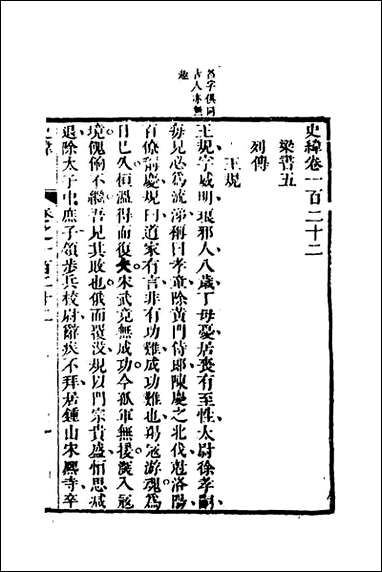 名字俱同
古人亦無
趣
史緯卷一百二十二
梁書五
列傳
王規
王規字威明琅邪人八歲丁母憂居喪有至性太尉徐孝嗣
每見必爲流涕稱曰孝童除黃門侍郎陳慶之北伐尅洛陽
百僚稱慶規曰道家有言非有功難成功難也羯寇游魂爲
日已久桓溫得而復失宋武竟無成功今孤軍無援深入寇
境傀俯不繼吾見其敗也俄而覆沒規以門宗貴盛恒思減
退除太子中庶子領步兵校尉辭疾不拜居鍾山宋熙寺卒
史緯
卷之一百二十二
一